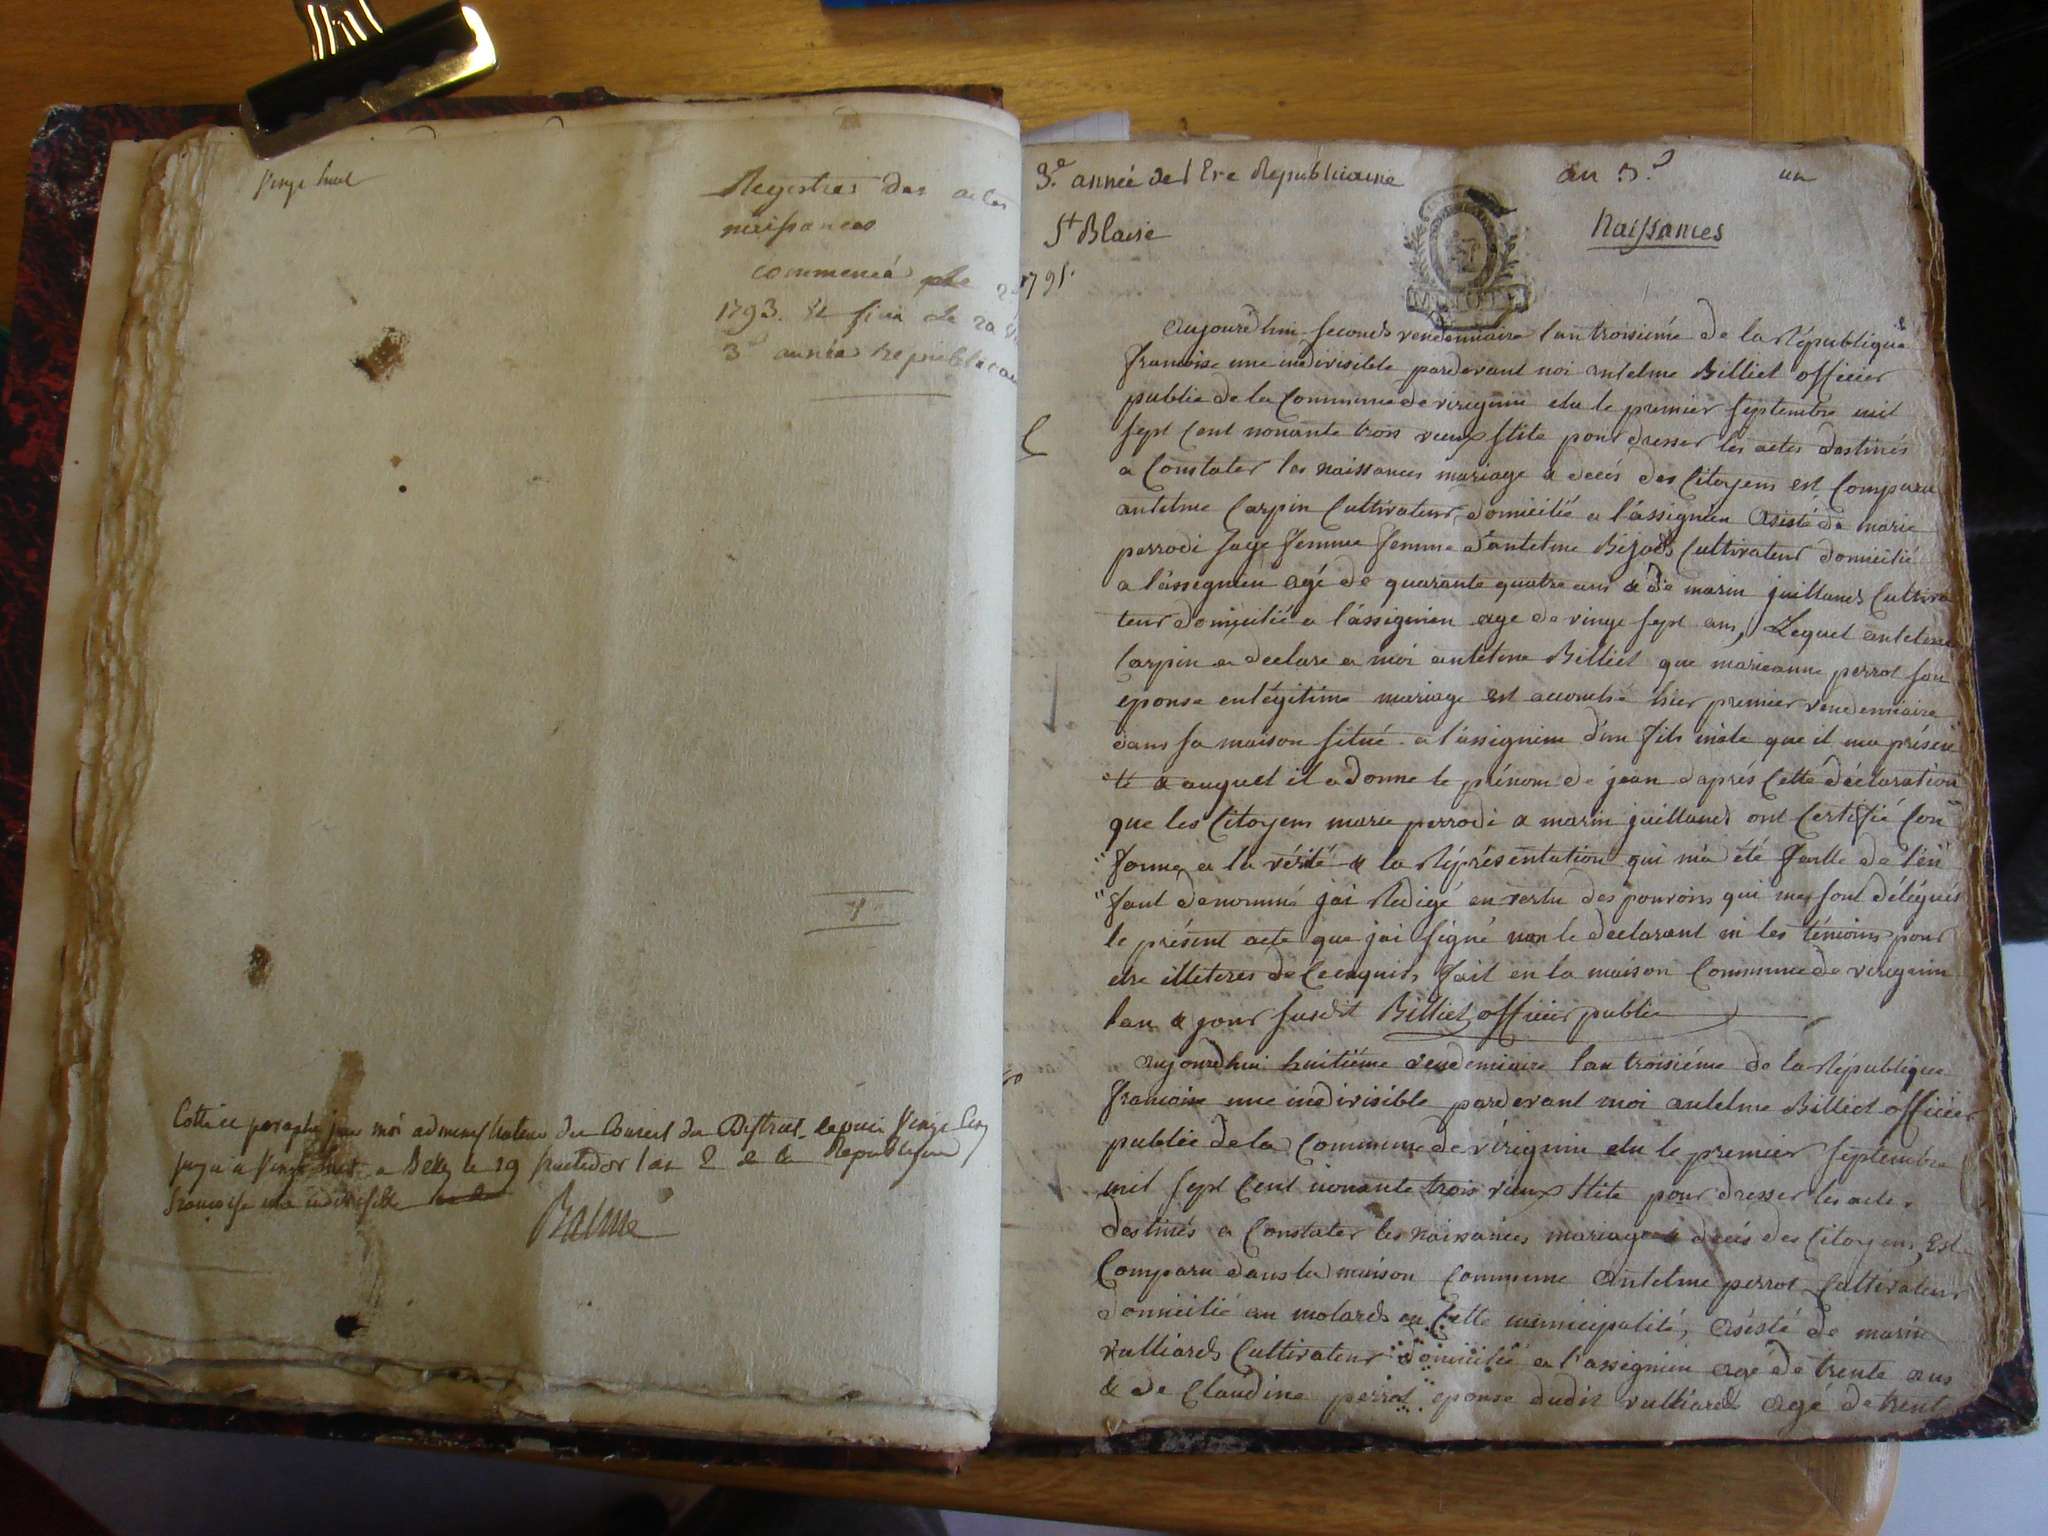 vingt huit
Registres des actes
naissances
commencé
1793. Et fini le 20
3e année republicai
Cotté et paraphé par moi administrateur du Conseil du District depuis vingt
jusqu'a vingt huit a Belley le 19 fructidor l'an 2 de la Republique
françoise une indivisible
Balme
3e. année de l'Ere Republicaine
an 3e
un
St Blaise
Naissances
1795.
aujourdhui second vendemiaire l'an troisieme de la République
francoise une indivisible pardevant moi antelme Billiet officier
public de la Commune de virignin elu le premier septembre mil
sept Cent nonante trois vieux stile pour dresser les actes destinés
a Constater les naissances mariage & decés des Citoyens est Comparu
antelme Carpin Cultivateur domicilié a l'assignieu Assisté de marie
perrodi sage femme femme d'antelme Cultivateur domicilié
a l'assignieu agé de quarante quatre ans & de marin juilland Cultiva
teur domicilié a l'assignieu age de vingt sept ans, Lequel antelme
Carpin a declare a moi antelme Billiet que marieanne perrot son
epouse en légitime mariage est accouché hier premier vendemiaire
dans sa maison situé a l'assignieu d'un fils mâle que il ma présen
té & auquel il a donne le prénom de jean daprés Cette déclaration
que les Citoyens marie perrodi & marin juilland ont Certifié Con
forme a la vérité & la Réprésentation qui m'a été faitte de l'en
fant denommé jai Redigé en vertu des pouvoirs qui me sont délégués
le présent acte que jai signé non le declarant ni les témoins pour
etre illeteres de Ce enquis, fait en la maison Commune de virignin
lan & jour susdit Billiet officier public
aujourdhui huitiéme vendemiaire lan troisiéme de la République
francoise une indivisible pardevant moi antelme Billiet officier
public de la Commune de virignin elu le premier septembre
mil sept Cent nonante trois vieux stile pour dresser les acte
destinés a Constater les naissances mariage & decés des Citoyens, Est
Comparu dans la maison Commune Antelme perrot Cultivateur
domicilié au molard en Cette municipalité, Assisté de marin
vulliard Cultivateur domicilié a l'assignieu agé de trente ans
& de Claudine perrot epouse dudit vulliard agé de trente